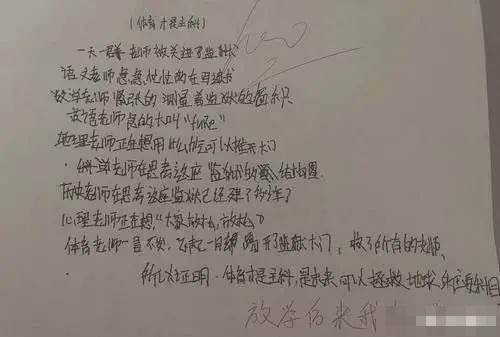 (体育才是主科)
一天一群老师被关进了监狱
语文老师急急忙忙的在写遗书
数学老师紧张的测量着监狱的面积
英语老师急的大叫"fuck"
地理老师正在想用什么能可以推开大门
老师在思考这座监狱的结构
历史老师在思考这座监狱已经建了多少年了
心理老师正在想"大家的什么,放松"
体育老师一声不吭,一脚踢开了监狱大门,救了所有的老师。
所以证明.体育才是主科,是未来可以拯救地球
放学后来我